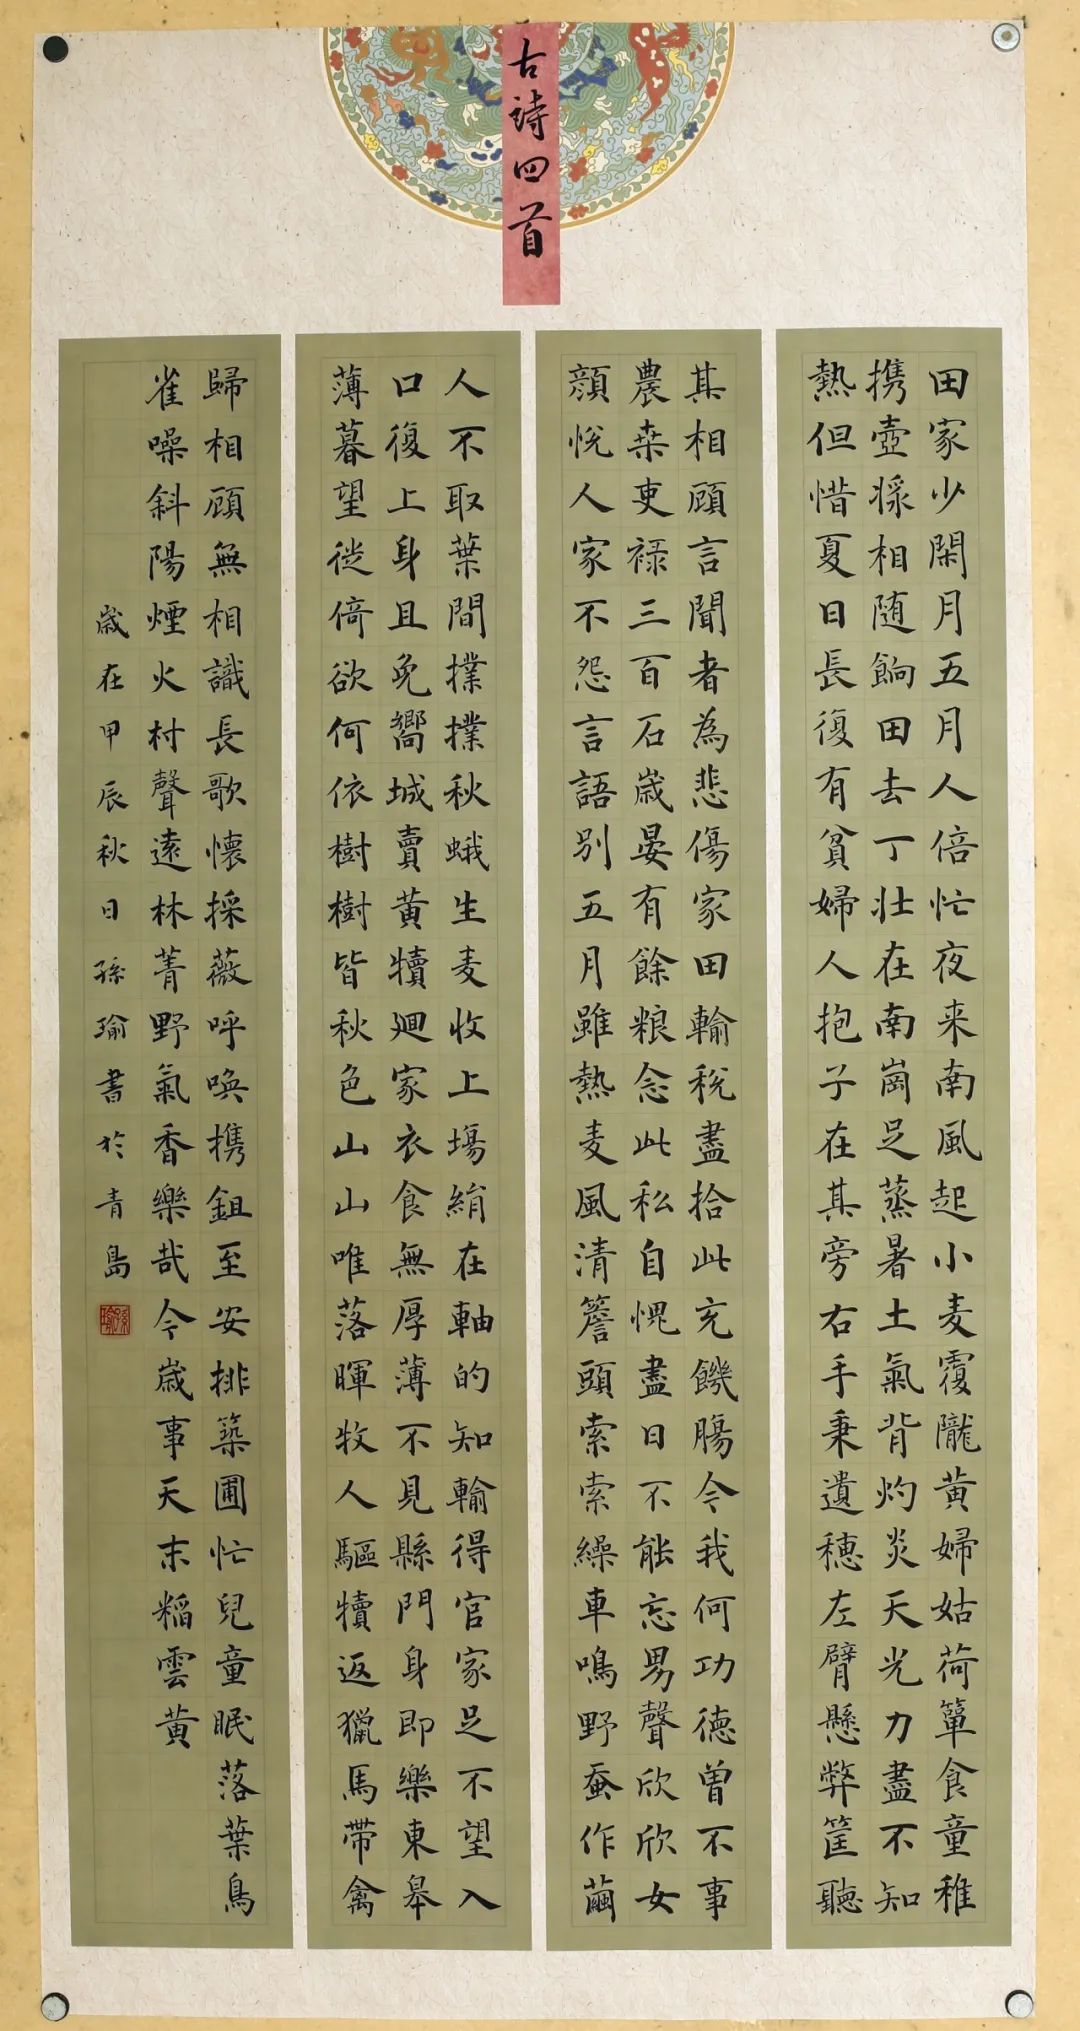 古詩四首
田家少閑月五月人倍忙夜来南風起小麦覆隴黄婦姑荷簞食童稚
携壺漿相随餉田去丁壯在南崗足蒸暑土氣背灼炎天光力盡不知
熱但惜夏日長復有貧婦人抱子在其旁右手秉遺穗左臂懸弊筐聽
其相顧言聞者為悲傷家田輸税盡拾此充饑腸今我何功德曽不事
農桒吏禄三百石歳晏有餘粮念此私自愧盡日不能忘男聲欣欣女
顔悅人家不怨言語別五月雖熱麦風清簷頭索索繰車鳴野蚕作繭
人不取葉間撲撲秋蛾生麦收上場絹在軸的知輸得官家足不望入
口復上身且免嚮城賣黄犢廻家衣食無厚薄不見縣門身即樂東皋
薄暮望徙倚欲何依樹樹皆秋色山山唯落暉牧人驅犢返獵馬帶禽
歸相顧無相識長歌懷採薇呼喚携鉏至安排築圃忙兒童眠落葉鳥
雀噪斜陽煙火村聲遠林菁野氣香樂哉今歳事天末稲雲黄
歳在甲辰秋日孫瑜書於青島
孫瑜